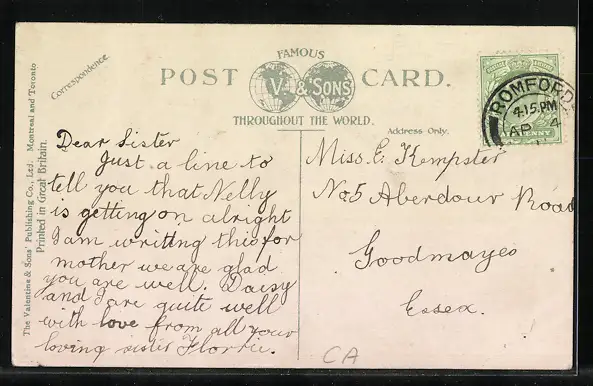 FAMOUS
POST CARD.
V. & SONS
THROUGHOUT THE WORLD.
Correspondence.
Address Only.
The Valentine & Sons' Publishing Co., Ltd., Montreal and Toronto
Printed in Great Britain.
ROMFORD
4.15 PM
AP 4
PENNY
Dear Sister
Just a line to
tell you that Nelly
is getting on alright
I am writing this for
mother we are glad
you are well. Daisy
and I are quite well
with love from all your
loving sister Florrie.
Miss. E. Kempster
No 5 Aberdour Road
Goodmayes
Essex.
CA